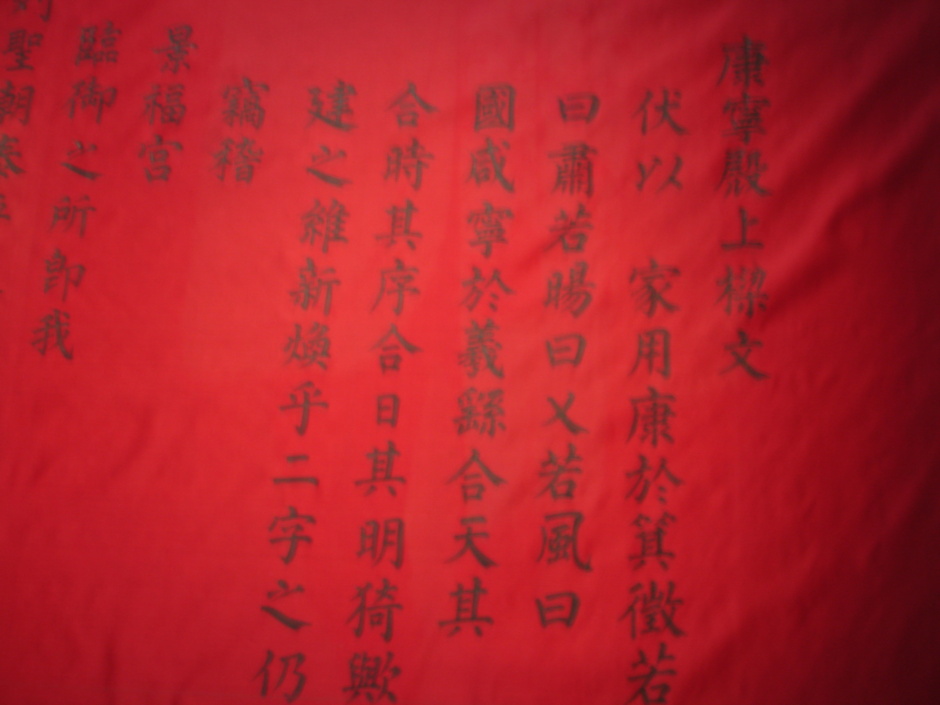 康寧殿上樑文
伏以 家用康於箕徵若
曰肅若暘曰乂若風曰
國咸寧於羲繇合天其
合時其序合日其明猗歟
建之維新煥乎二字之仍
竊稽
景福宮
臨御之所卽我
聖朝泰